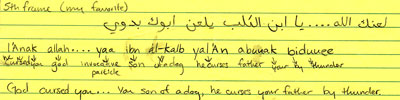 5th frame (my favorite)
لعنك الله.....يا ابن الكلب يلعن ابوك بدوي
l'Anak allah.... yaa ibn al-kalb yal'An abuuk biduuee
cursed you god invocative son of a dog he curses father your by thunder
particle
God cursed you... You son of a dog, he curses your father by thunder.